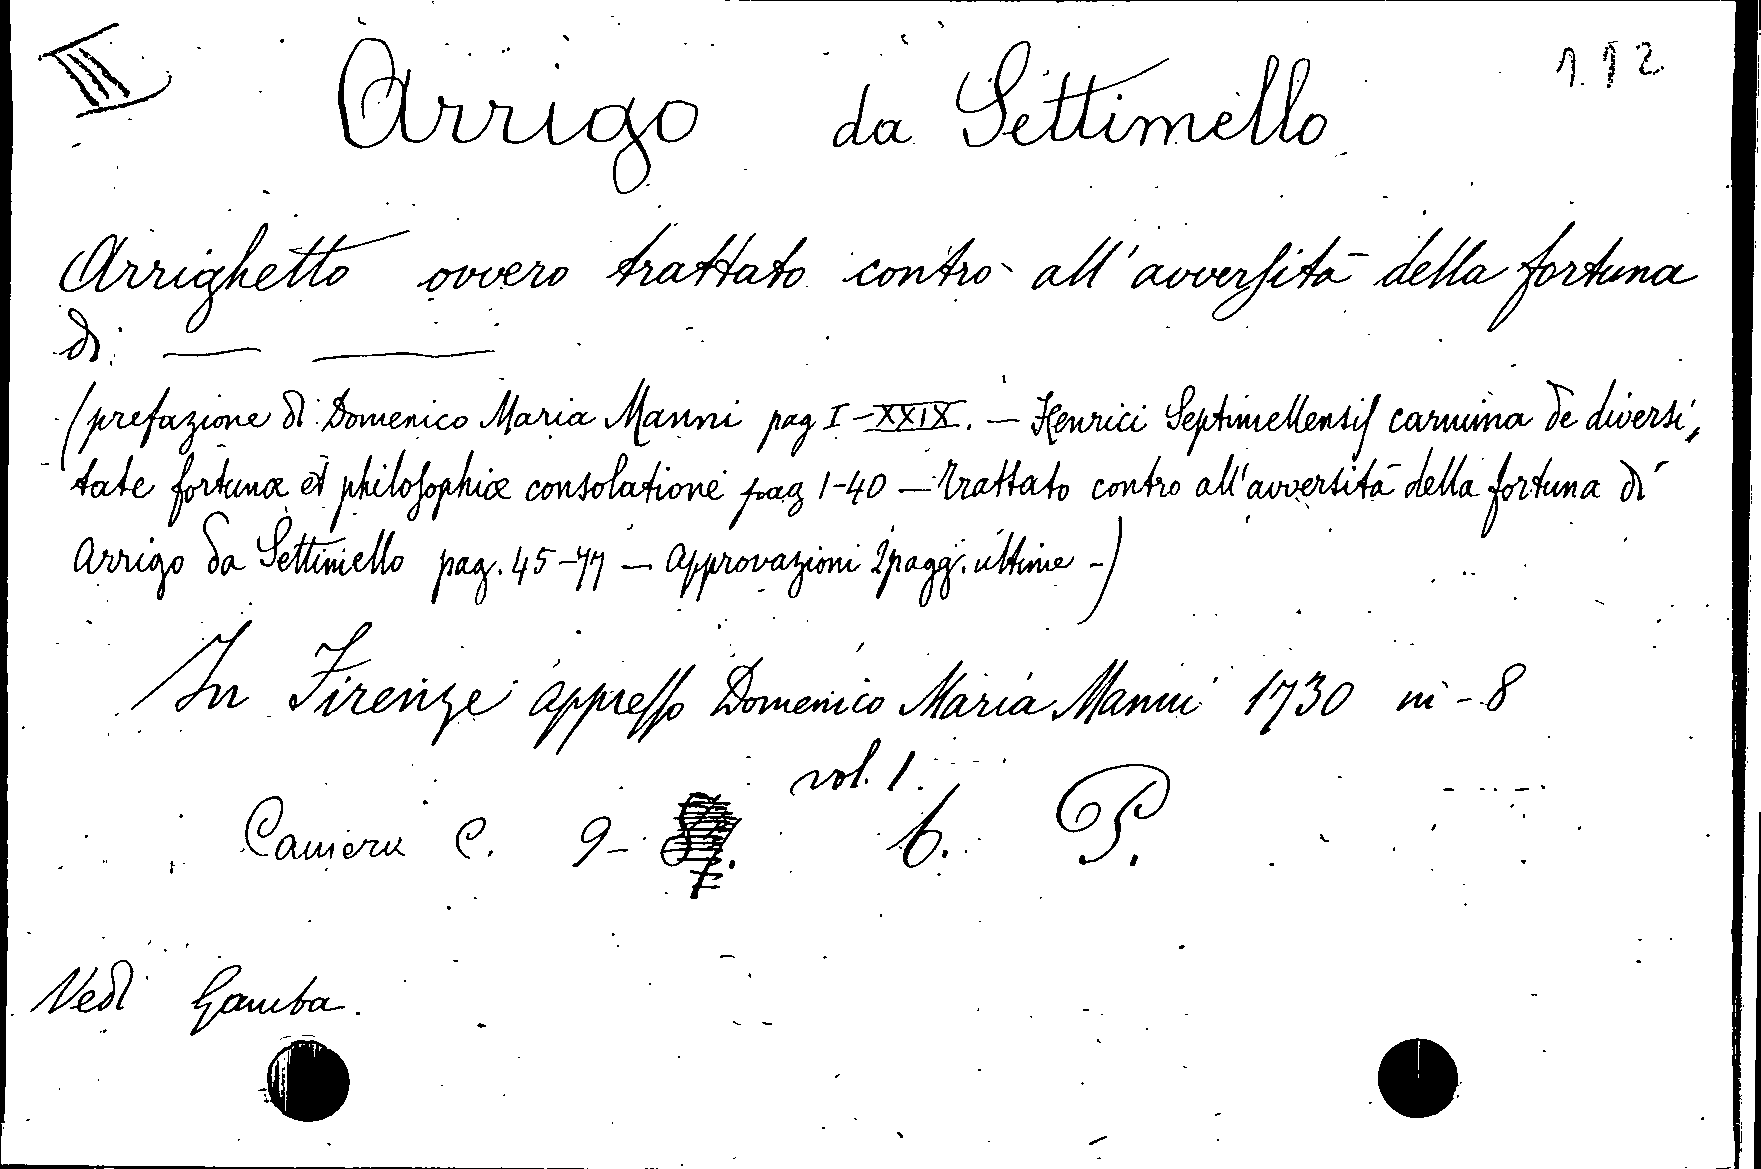 III
1.12
Arrigo da Settimello
Arrighetto ovvero trattato contro all'avversità della fortuna
di — —
(prefazione di Domenico Maria Manni pag I-XXIX. — Henrici Septimellensis carmina de diversi,
tate fortunæ et philosophiæ consolatione pag 1-40 — trattato contro all'avversità della fortuna di
Arrigo da Settimello pag. 45-77 — Approvazioni 2 pagg. ultime -)
In Firenze appresso Domenico Maria Manni 1730 in-8
vol. 1.
Camera C. 9- 6. P.
Vedi Gamba.